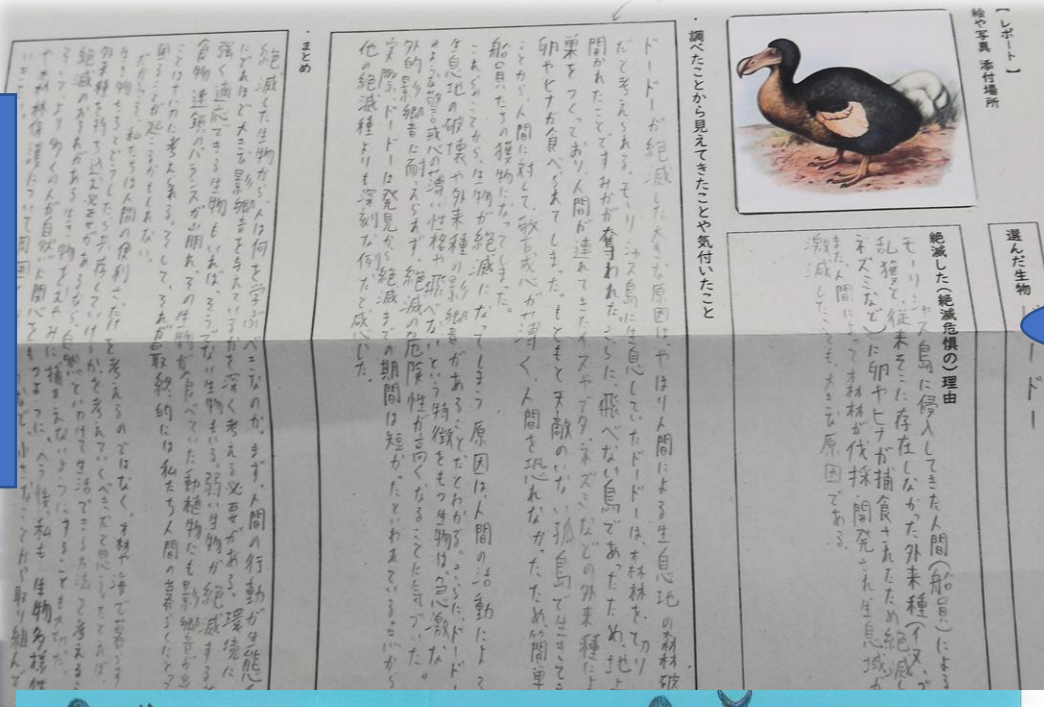 【レポート】
絵や写真 添付場所
選んだ生物
ドードー
絶滅した(絶滅危惧の)理由
モーリシャス島に侵入してきた人間(船員)による
乱獲と、従来そこに存在しなかった外来種(イヌ、ブ
ネズミなど)に卵やヒナが捕食されたため絶滅し
また人間によって森林が伐採、開発され生息域が
激減したことも、大きな原因である。
・調べたことから見えてきたことや気付いたこと
ドードーが絶滅した大きな原因は、やはり人間による生息地の森林破
だと考えられる。モーリシャス島に生息していたドードーは、森林を切り
開かれたことですみかが奪われた。さらに、飛べない鳥であったため、地上
巣をつくっており、人間が連れてきたイヌやブタ、ネズミなどの外来種によ
卵やヒナが食べられてしまった。もともと天敵のいない孤島で生きてき
ことから、人間に対して警戒心が薄く、人間を恐れなかったため簡単
船員たちの獲物になってしまった。
これらのことから、生物が絶滅になってしまう原因は、人間の活動によ
生息地の破壊や外来種の影響があることだとわかる。さらに、ドードー
のような警戒心の薄い性格や飛べないという特徴をもつ生物は、急激な
外的影響に耐えられず、絶滅の危険性が高くなることに気づいた。
実際、ドードーは発見から絶滅までの期間は短かったといわれている点から
他の絶滅種よりも深刻な例だと感じた。
・まとめ
絶滅した生物から、人は何を学ぶべきなのか。まず、人間の行動が生態
にどれほど大きな影響を与えているかを深く考える必要がある。環境に
強く適応できる生物もいれば、そうでない生物もいる。弱い生物が絶滅すると
食物連鎖のバランスが崩れ、その生物が食べていた動植物にも影響が
ことは十分に考えられる。そして、それが最終的には私たち人間の暮らしにとって
困ることが起こるかもしれない。
だからこそ、私たちは人間の便利さだけを考えるのではなく、森林や海で暮らす
生き物たちとどうしたら共存していけるかを考えていくべきだと思う。たとえば、
外来種を持ち込む
絶滅のおそれがある生き物をむやみに捕まえないようにすることも大切だ。
より多くの人が自然に関心をもつように、今後、私も生物多様性
や森林保護について
小さなことから取り組んで